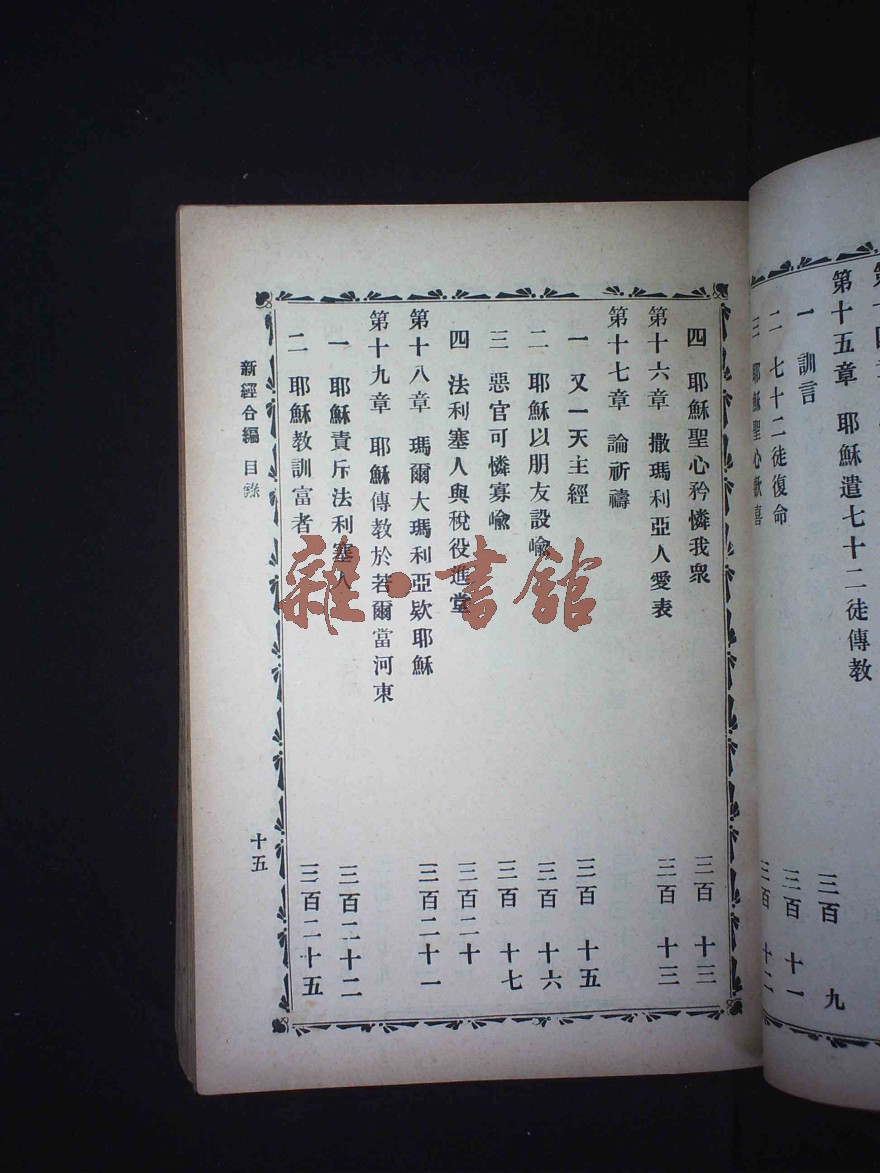 第十五章　耶穌遣七十二徒傳教
一　訓言　三百　九
二　七十二徒復命　三百　十一
三　耶穌聖心歡喜　三百　十二
四　耶穌聖心矜憐我衆　三百　十三
第十六章　撒瑪利亞人愛表　三百　十三
第十七章　論祈禱
一　又一天主經　三百　十五
二　耶穌以朋友設喩　三百　十六
三　惡官可憐寡喩　三百　十七
四　法利塞人與稅役進堂　三百二十
第十八章　瑪爾大瑪利亞欵耶穌　三百二十一
第十九章　耶穌傳教於若爾當河東
一　耶穌責斥法利塞人　三百二十二
二　耶穌教訓富者　三百二十五
新經合編　目錄　十五
雜·書館